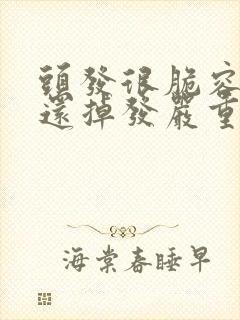 頭發很脆容
還掉發嚴重
海棠春睡早